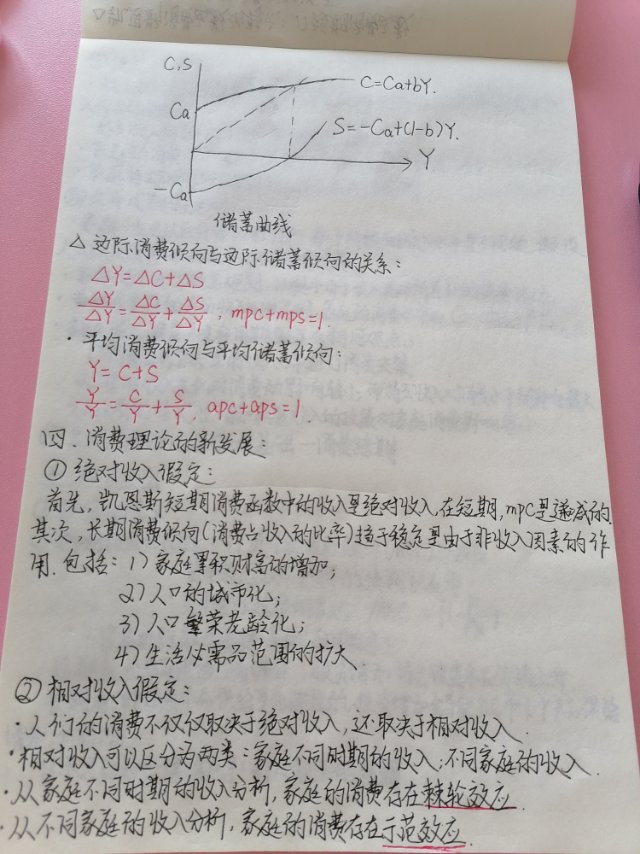 C,S
C=Ca+bY.
Ca
S=-Ca+(1-b)Y.
Y
-Ca
储蓄曲线
△ 边际消费倾向与边际储蓄倾向的关系：
△Y=△C+△S
△Y/△Y=△C/△Y+△S/△Y，mpc+mps=1.
·平均消费倾向与平均储蓄倾向：
Y=C+S
Y/Y=C/Y+S/Y，apc+aps=1.
四．消费理论的新发展：
① 绝对收入假定：
首先，凯恩斯短期消费函数中的收入是绝对收入，在短期，mpc是递减的
其次，长期消费倾向(消费占收入的比率)趋于稳定是由于非收入因素的作
用．包括：1)家庭累积财富的增加；
2)人口的城市化；
3)人口繁荣老龄化；
4)生活必需品范围的扩大．
② 相对收入假定：
·人们的消费不仅仅取决于绝对收入，还取决于相对收入．
·相对收入可以区分为两类：家庭不同时期的收入；不同家庭的收入．
·从家庭不同时期的收入分析，家庭的消费存在棘轮效应．
·从不同家庭的收入分析，家庭的消费存在示范效应．